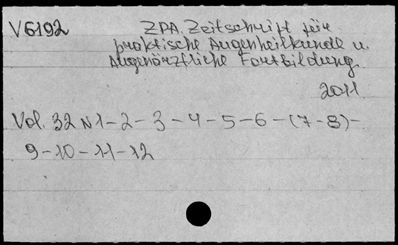 V6192
ZPA. Zeitschrift für
praktische Augenheilkunde u.
Augenärztliche Fortbildung.
2011
Vol. 32 N 1 - 2 - 3 - 4 - 5 - 6 - (7 - 8) -
9 - 10 - 11 - 12